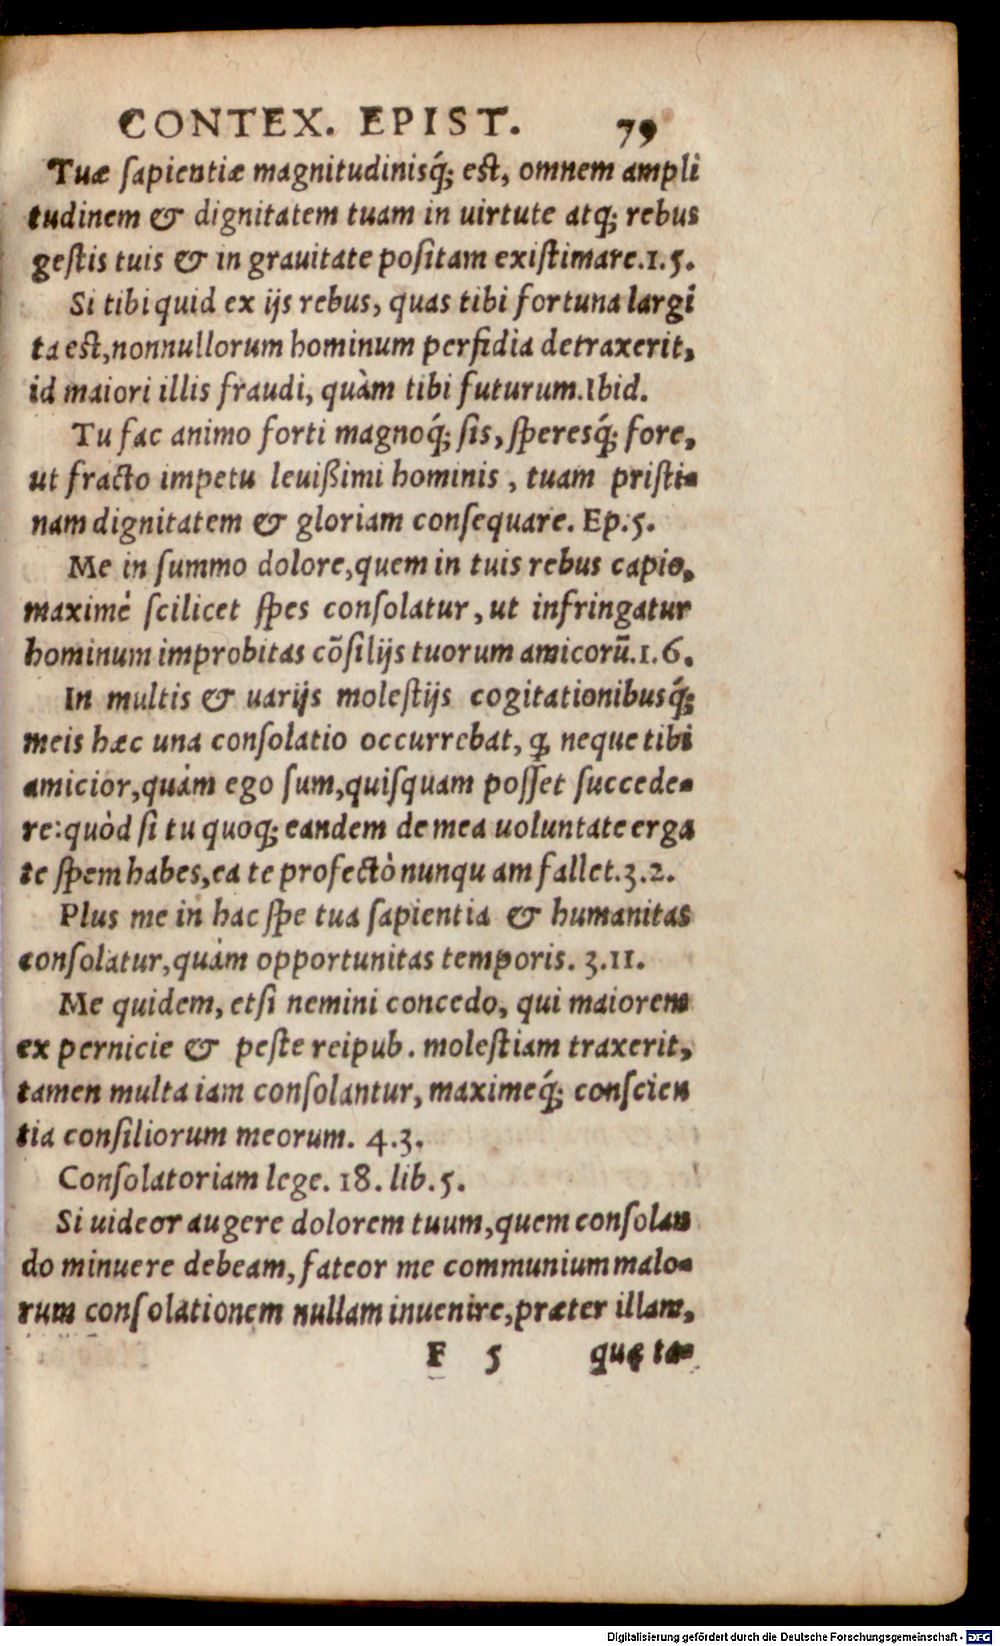 CONTEX. EPIST. 79
Tuæ ſapientiæ magnitudinisq́; est, omnem ampli
tudinem & dignitatem tuam in uirtute atq; rebus
gestis tuis & in grauitate poſitam existimare.1.5.
Si tibi quid ex ijs rebus, quas tibi fortuna largi
ta est,nonnullorum hominum perfidia detraxerit,
id maiori illis fraudi, quàm tibi futurum.Ibid.
Tu fac animo forti magnoq́; ſis, ſperesq́; fore,
ut fracto impetu leuißimi hominis, tuam priſti-
nam dignitatem & gloriam conſequare. Ep.5.
Me in ſummo dolore,quem in tuis rebus capio,
maximè ſcilicet ſpes conſolatur, ut infringatur
hominum improbitas cõſilijs tuorum amicorũ.1.6.
In multis & uarijs moleſtijs cogitationibusq́;
meis hæc una conſolatio occurrebat, ꝙ neque tibi
amicior,quàm ego ſum,quiſquam poſſet ſuccede-
re:quòd ſi tu quoq; eandem de mea uoluntate erga
te ſpem habes,ea te profectò nunqu am fallet.3.2.
Plus me in hac ſpe tua ſapientia & humanitas
conſolatur,quàm opportunitas temporis. 3.11.
Me quidem, etſi nemini concedo, qui maiorem
ex pernicie & peſte reipub. moleſtiam traxerit,
tamen multa iam conſolantur, maximeq́; conſcien
tia conſiliorum meorum. 4.3.
Conſolatoriam lege. 18. lib.5.
Si uideor augere dolorem tuum,quem conſolan
do minuere debeam, fateor me communium malo-
rum conſolationem nullam inuenire,præter illam,
F 5 quę ta-
Digitalisierung gefördert durch die Deutsche Forschungsgemeinschaft - DFG